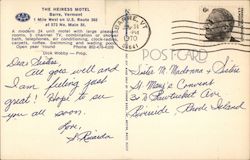 THE HEIRESS MOTEL
Barre, Vermont
1 Mile West on U.S. Route 302
at 573 No. Main St.
A modern 24 unit motel with large pleasant
rooms, 5 channel TV, combination or shower
bath, telephones, air conditioning, clock-radios,
carpets, coffee. Swimming and wading pool.
Open year 'round Phone 802-476-4109
Dick Hobby — Prop.
Dear Sister,
All goes well and I
am feeling just
great! Hope to see
you all soon.
Love,
S. Ricarda
BARRE, VT
PM
1970
05641
6¢
POST CARD
Sister M. Madonna & Sisters
St. Mary's Convent
Pawtucket Ave
Riverside, Rhode Island